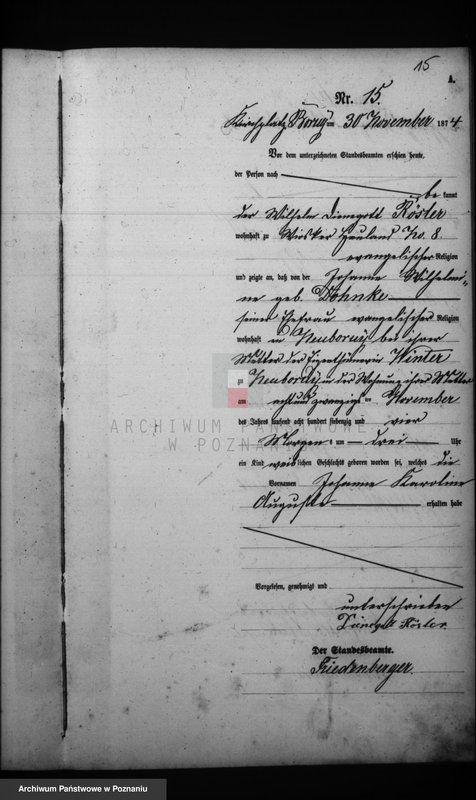 15
A.
Nr. 15.
Kirchplatz Boruy am 30 November 1874
Vor dem unterzeichneten Standesbeamten erschien heute,
der Person nach
be kannt
der Wilhelm Dienegott Röster
wohnhaft zu Hauland No. 8
evangelischer Religion
und zeigte an, daß von der Johanne Wilhelmi-
ne geb. Döhnke
seiner Ehefrau evangelischer Religion
wohnhaft in Neuboruy bei ihrer
Mutter der Eigenthümerin Winter
zu Neuboruy in der Wohnung ihrer Mutter
am acht und zwanzigsten November
des Jahres tausend acht hundert siebenzig und vier
Morgens um drei Uhr
ein Kind weiblichen Geschlechts geboren worden sei, welches die
Vornamen Johanne Karoline
Auguste erhalten habe
Vorgelesen, genehmigt und
unterschrieben
Röster.
Der Standesbeamte.
Riedenberger.
ARCHIWUM PAŃSTWOWE
W POZNANIU
Archiwum Państwowe w Poznaniu